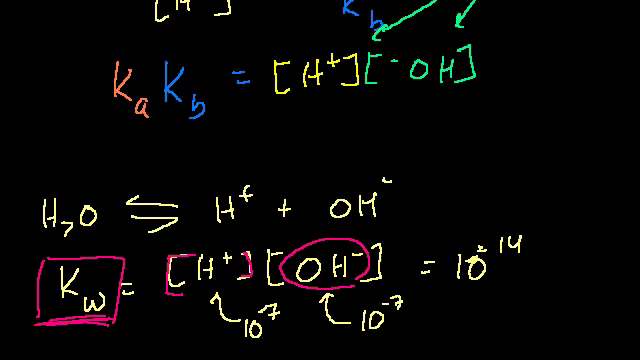 K b
Ka Kb = [H+][-OH]
H2O ⇌ H+ + OH-
Kw = [H+][OH-] = 10-14
10-7 10-7